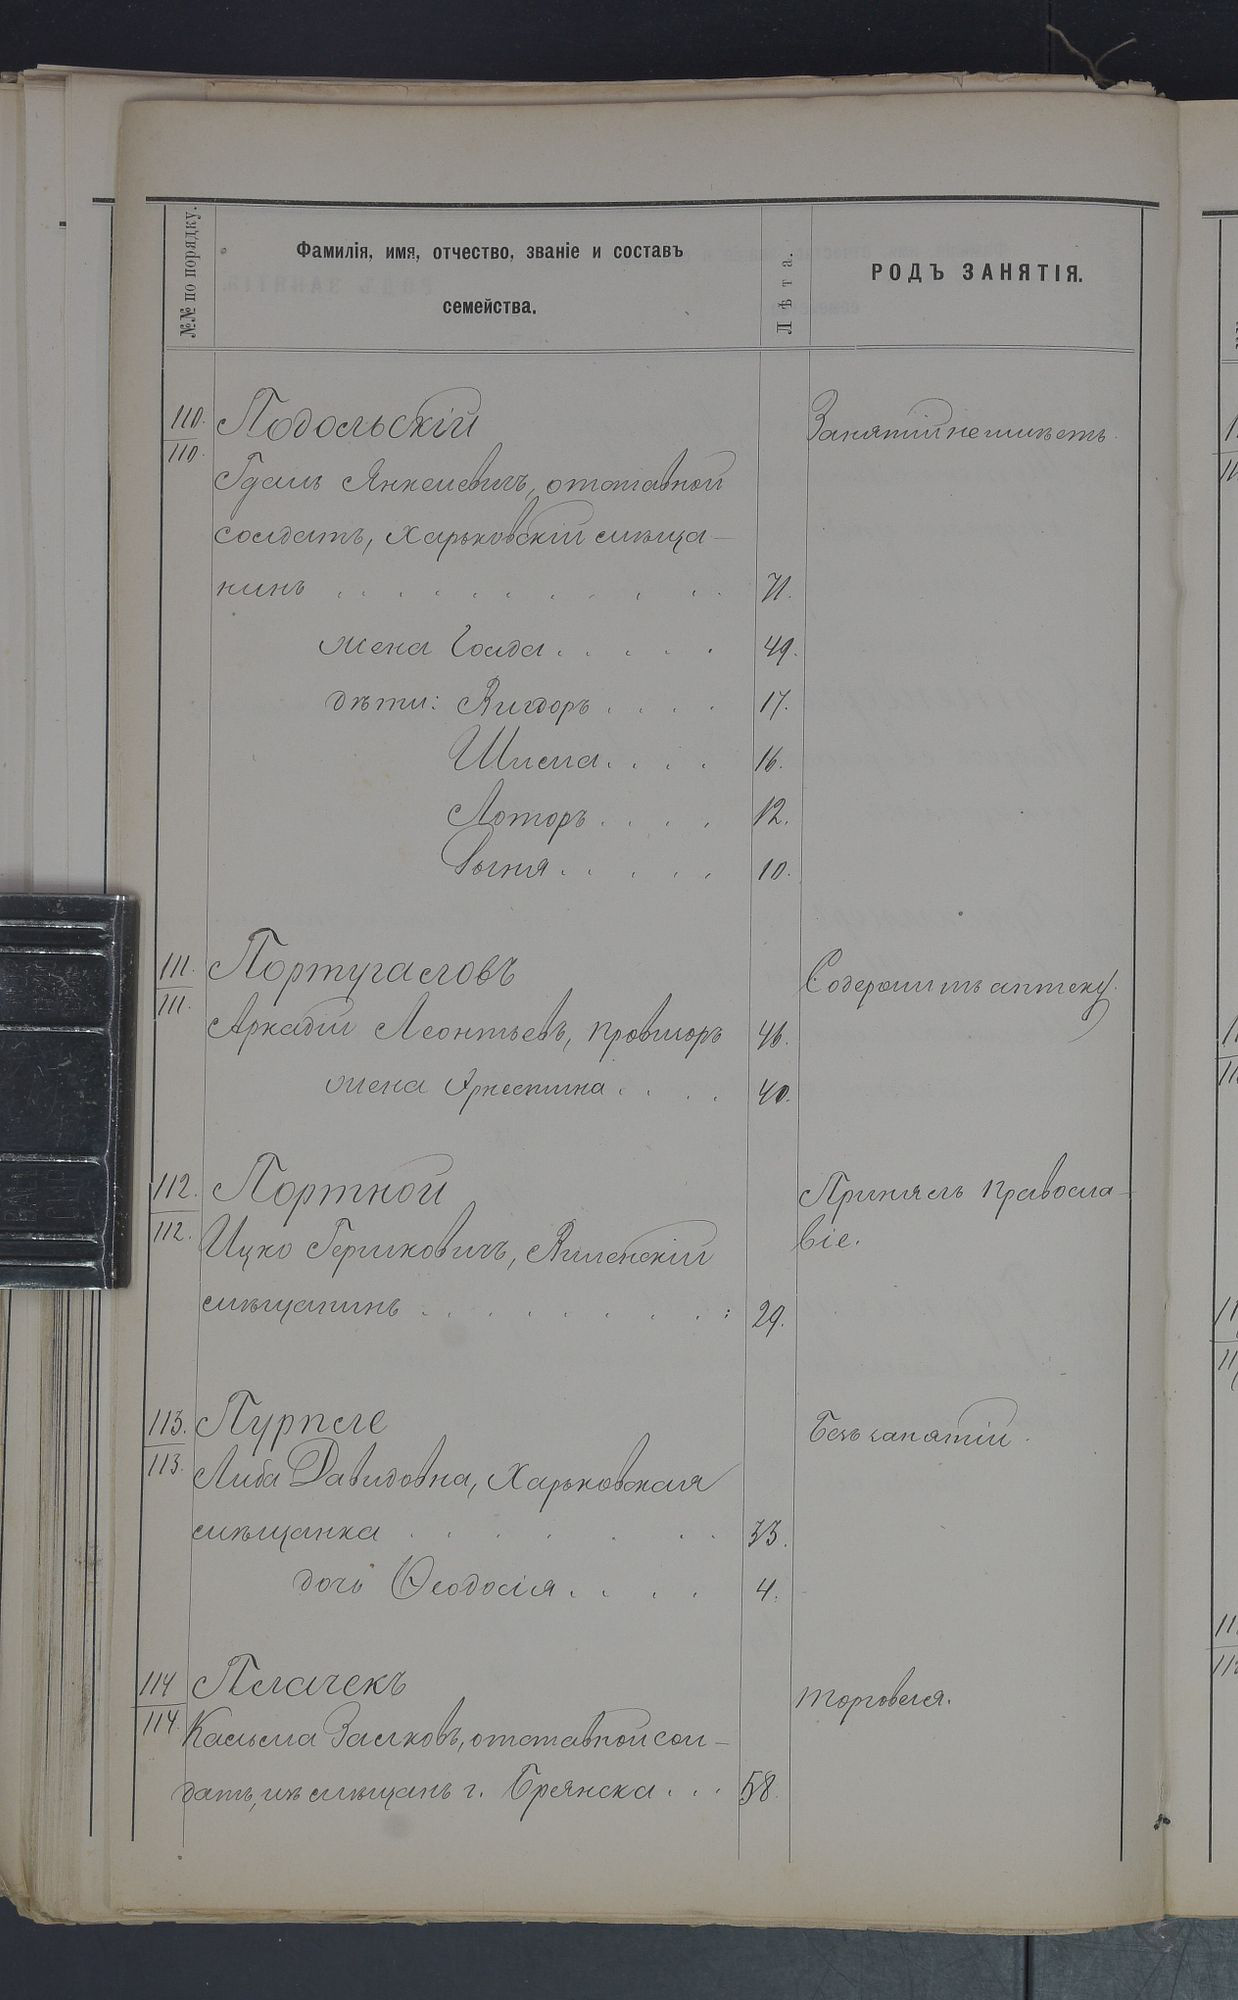 №№ по порядку.
Фамилія, имя, отчество, званіе и составъ
семейства.
Лѣта.
РОДЪ ЗАНЯТІЯ.
110. Подольскій Занятій не имѣетъ.
110.
Гдаль Янкелевичъ, отставной
солдатъ, Харьковскій мѣща-
нинъ . . . . . . . . . . . 71.
жена Голда . . . . . 49.
дѣти: Вигдоръ . . . . 17.
Шлема . . . . 16.
Лоторъ . . . . 12.
Гытя . . . . . 10.
111. Португаловъ Содержитъ аптеку.
111.
Аркадій Леонтьевъ, провизоръ 46.
жена Эрнестина . . . . 40.
112. Портной Принялъ правосла-
112. віе.
Ицко Гершковичъ, Виленскій
мѣщанинъ . . . . . . . . . : 29.
113. Пурпле Безъ занятій.
113.
Либа Давидовна, Харьковская
мѣщанка . . . . . . . 33.
дочь Ѳеодосія . . . . 4.
114 Плачекъ торговля.
114.
Кальма Залковъ, отставной сол-
датъ, изъ мѣщанъ г. Брянска . . . 58.